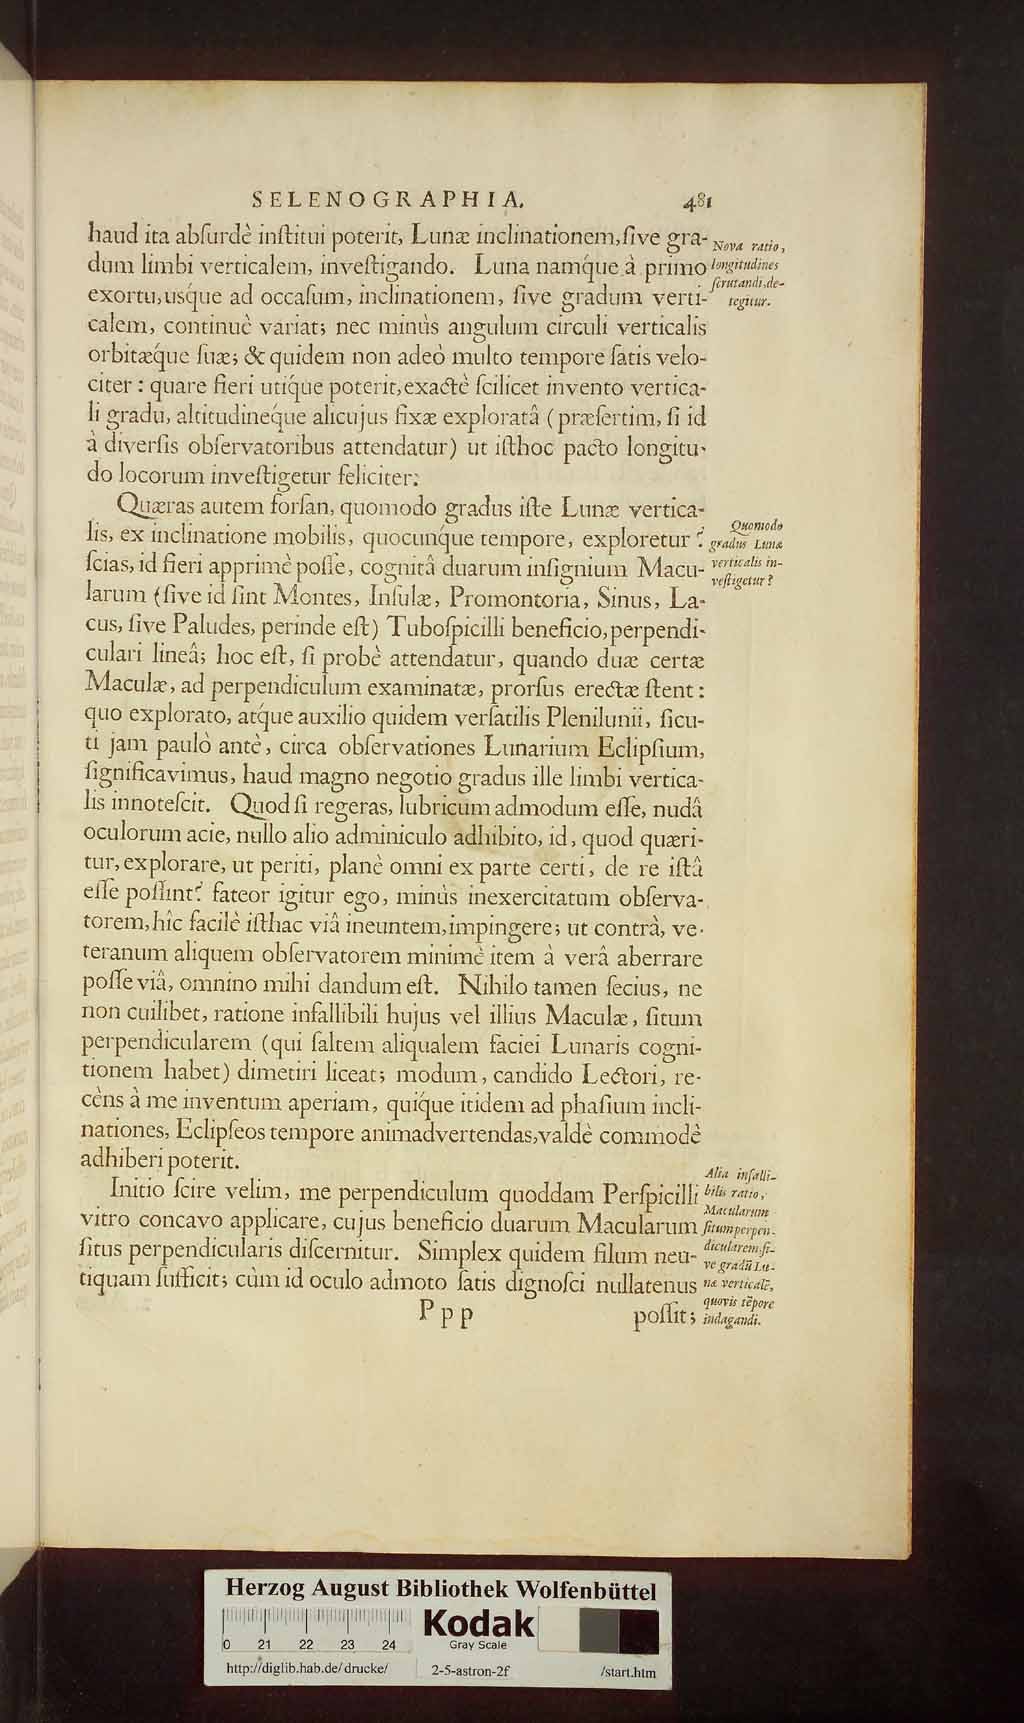 SELENOGRAPHIA. 481
haud ita abſurdè inſtitui poterit, Lunæ inclinationem, ſive gra-
dum limbi verticalem, inveſtigando. Luna namq́ue à primo
exortu, usq́ue ad occaſum, inclinationem, ſive gradum verti-
calem, continuè variat; nec minùs angulum circuli verticalis
orbitæq́ue ſuæ; & quidem non adeò multo tempore ſatis velo-
citer : quare fieri utiq́ue poterit, exactè ſcilicet invento vertica-
li gradu, altitudineq́ue alicujus fixæ exploratâ (præſertim, ſi id
à diverſis obſervatoribus attendatur) ut iſthoc pacto longitu-
do locorum inveſtigetur feliciter.
Nova ratio,
longitudines
ſcrutandi, de-
tegitur.
Quæras autem forſan, quomodo gradus iſte Lunæ vertica-
lis, ex inclinatione mobilis, quocunq́ue tempore, exploretur?
ſcias, id fieri apprimè poſſe, cognitâ duarum inſignium Macu-
larum (ſive id ſint Montes, Inſulæ, Promontoria, Sinus, La-
cus, ſive Paludes, perinde eſt) Tuboſpicilli beneficio, perpendi-
culari lineâ; hoc eſt, ſi probè attendatur, quando duæ certæ
Maculæ, ad perpendiculum examinatæ, prorſus erectæ ſtent :
quo explorato, atq́ue auxilio quidem verſatilis Plenilunii, ſicu-
ti jam paulò antè, circa obſervationes Lunarium Eclipſium,
ſignificavimus, haud magno negotio gradus ille limbi vertica-
lis innoteſcit. Quod ſi regeras, lubricum admodum eſſe, nudâ
oculorum acie, nullo alio adminiculo adhibito, id, quod quæri-
tur, explorare, ut periti, planè omni ex parte certi, de re iſtâ
eſſe poſſint? fateor igitur ego, minùs inexercitatum obſerva-
torem, hîc facilè iſthac viâ ineuntem, impingere; ut contrà, ve-
teranum aliquem obſervatorem minimè item à verâ aberrare
poſſe viâ, omnino mihi dandum eſt. Nihilo tamen ſecius, ne
non cuilibet, ratione infallibili hujus vel illius Maculæ, ſitum
perpendicularem (qui ſaltem aliqualem faciei Lunaris cogni-
tionem habet) dimetiri liceat; modum, candido Lectori, re-
cèns à me inventum aperiam, quiq́ue itidem ad phaſium incli-
nationes, Eclipſeos tempore animadvertendas, valdè commodè
adhiberi poterit.
Quomodo
gradus Lunæ
verticalis in-
veſtigetur?
Initio ſcire velim, me perpendiculum quoddam Perſpicilli
vitro concavo applicare, cujus beneficio duarum Macularum
ſitus perpendicularis diſcernitur. Simplex quidem filum neu-
tiquam ſufficit; cùm id oculo admoto ſatis dignoſci nullatenus
Alia infalli-
bilis ratio,
Macularum
ſitum perpen-
dicularem, ſi-
ve gradũ Lu-
næ verticalē,
quovis tēpore
indagandi.
Ppp poſſit;
Herzog August Bibliothek Wolfenbüttel
Kodak
Gray Scale
0 21 22 23 24
http://diglib.hab.de/drucke/ 2-5-astron-2f /start.htm